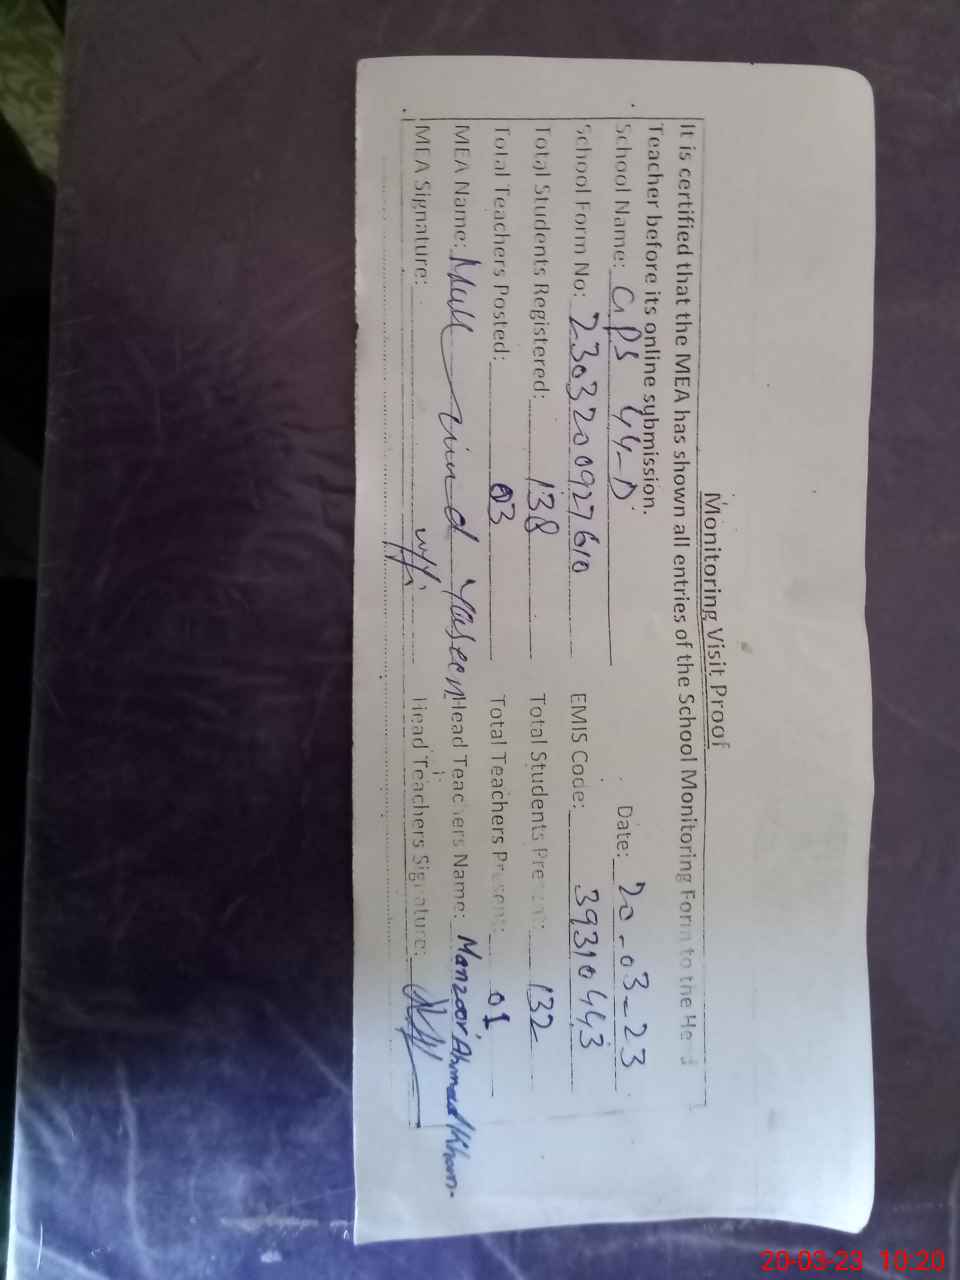 Monitoring Visit Proof
It is certified that the MEA has shown all entries of the School Monitoring Form to the Head
Teacher before its online submission.
School Name: GPS 44-D Date: 20-03-23
School Form No: 2303200927610 EMIS Code: 39310443
Total Students Registered: 138 Total Students Present: 132
Total Teachers Posted: 03 Total Teachers Present: 01
MEA Name: Yaseen Head Teachers Name: Manzoor Ahmad Khan.
MEA Signature: Head Teachers Signature:
20-03-23 10:20